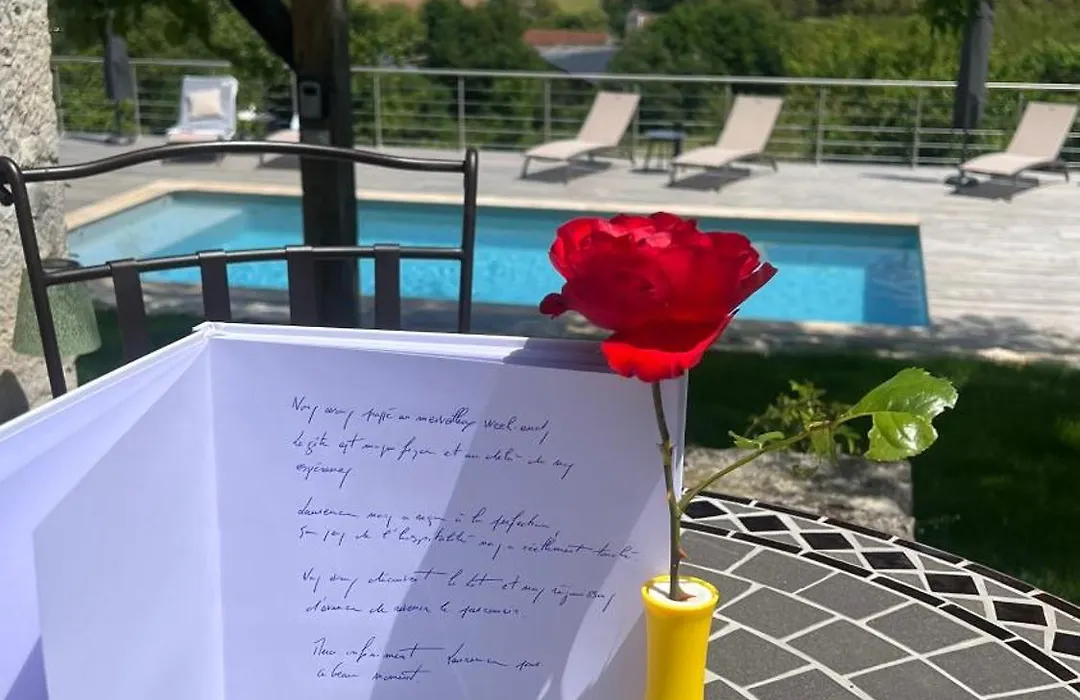 Nous avons passé un merveilleux week-end,
le gîte est magnifique et au delà de nos
espérances
Laurence nous a reçu à la perfection,
Son sens de l'hospitalité nous a réellement touché.
Nous avons découvert le Lot et nous réjouissons
d'avance de revenir le parcourir.
Merci infiniment Laurence pour
ce beau moment.